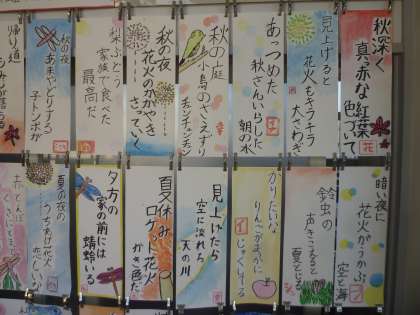 秋深く
真赤な紅葉
色づいて
見上げると
花火もキラキラ
大さわぎ
あっつめた
秋さんいらした
朝の水
秋の庭
小鳥のさえずり
チュンチュンチュン
秋の夜
花火のかがやき
さっていく
梨ぶどう
家族で食べた
最高だ
秋の夜
あまやどりする
子トンボが
帰り道
暗い夜に
花火がうかぶ
空と海
鈴虫の
声きこえると
夏とじる
かりたいな
りんごがまっかに
じゅくしてる
見上げたら
空に流れろ
天の川
夏休み
ロケット花火
かき色だ
夕方の
家の前には
蜻蛉いる
夏の夜の
うちあげ花火
恋しいな
赤とんぼ